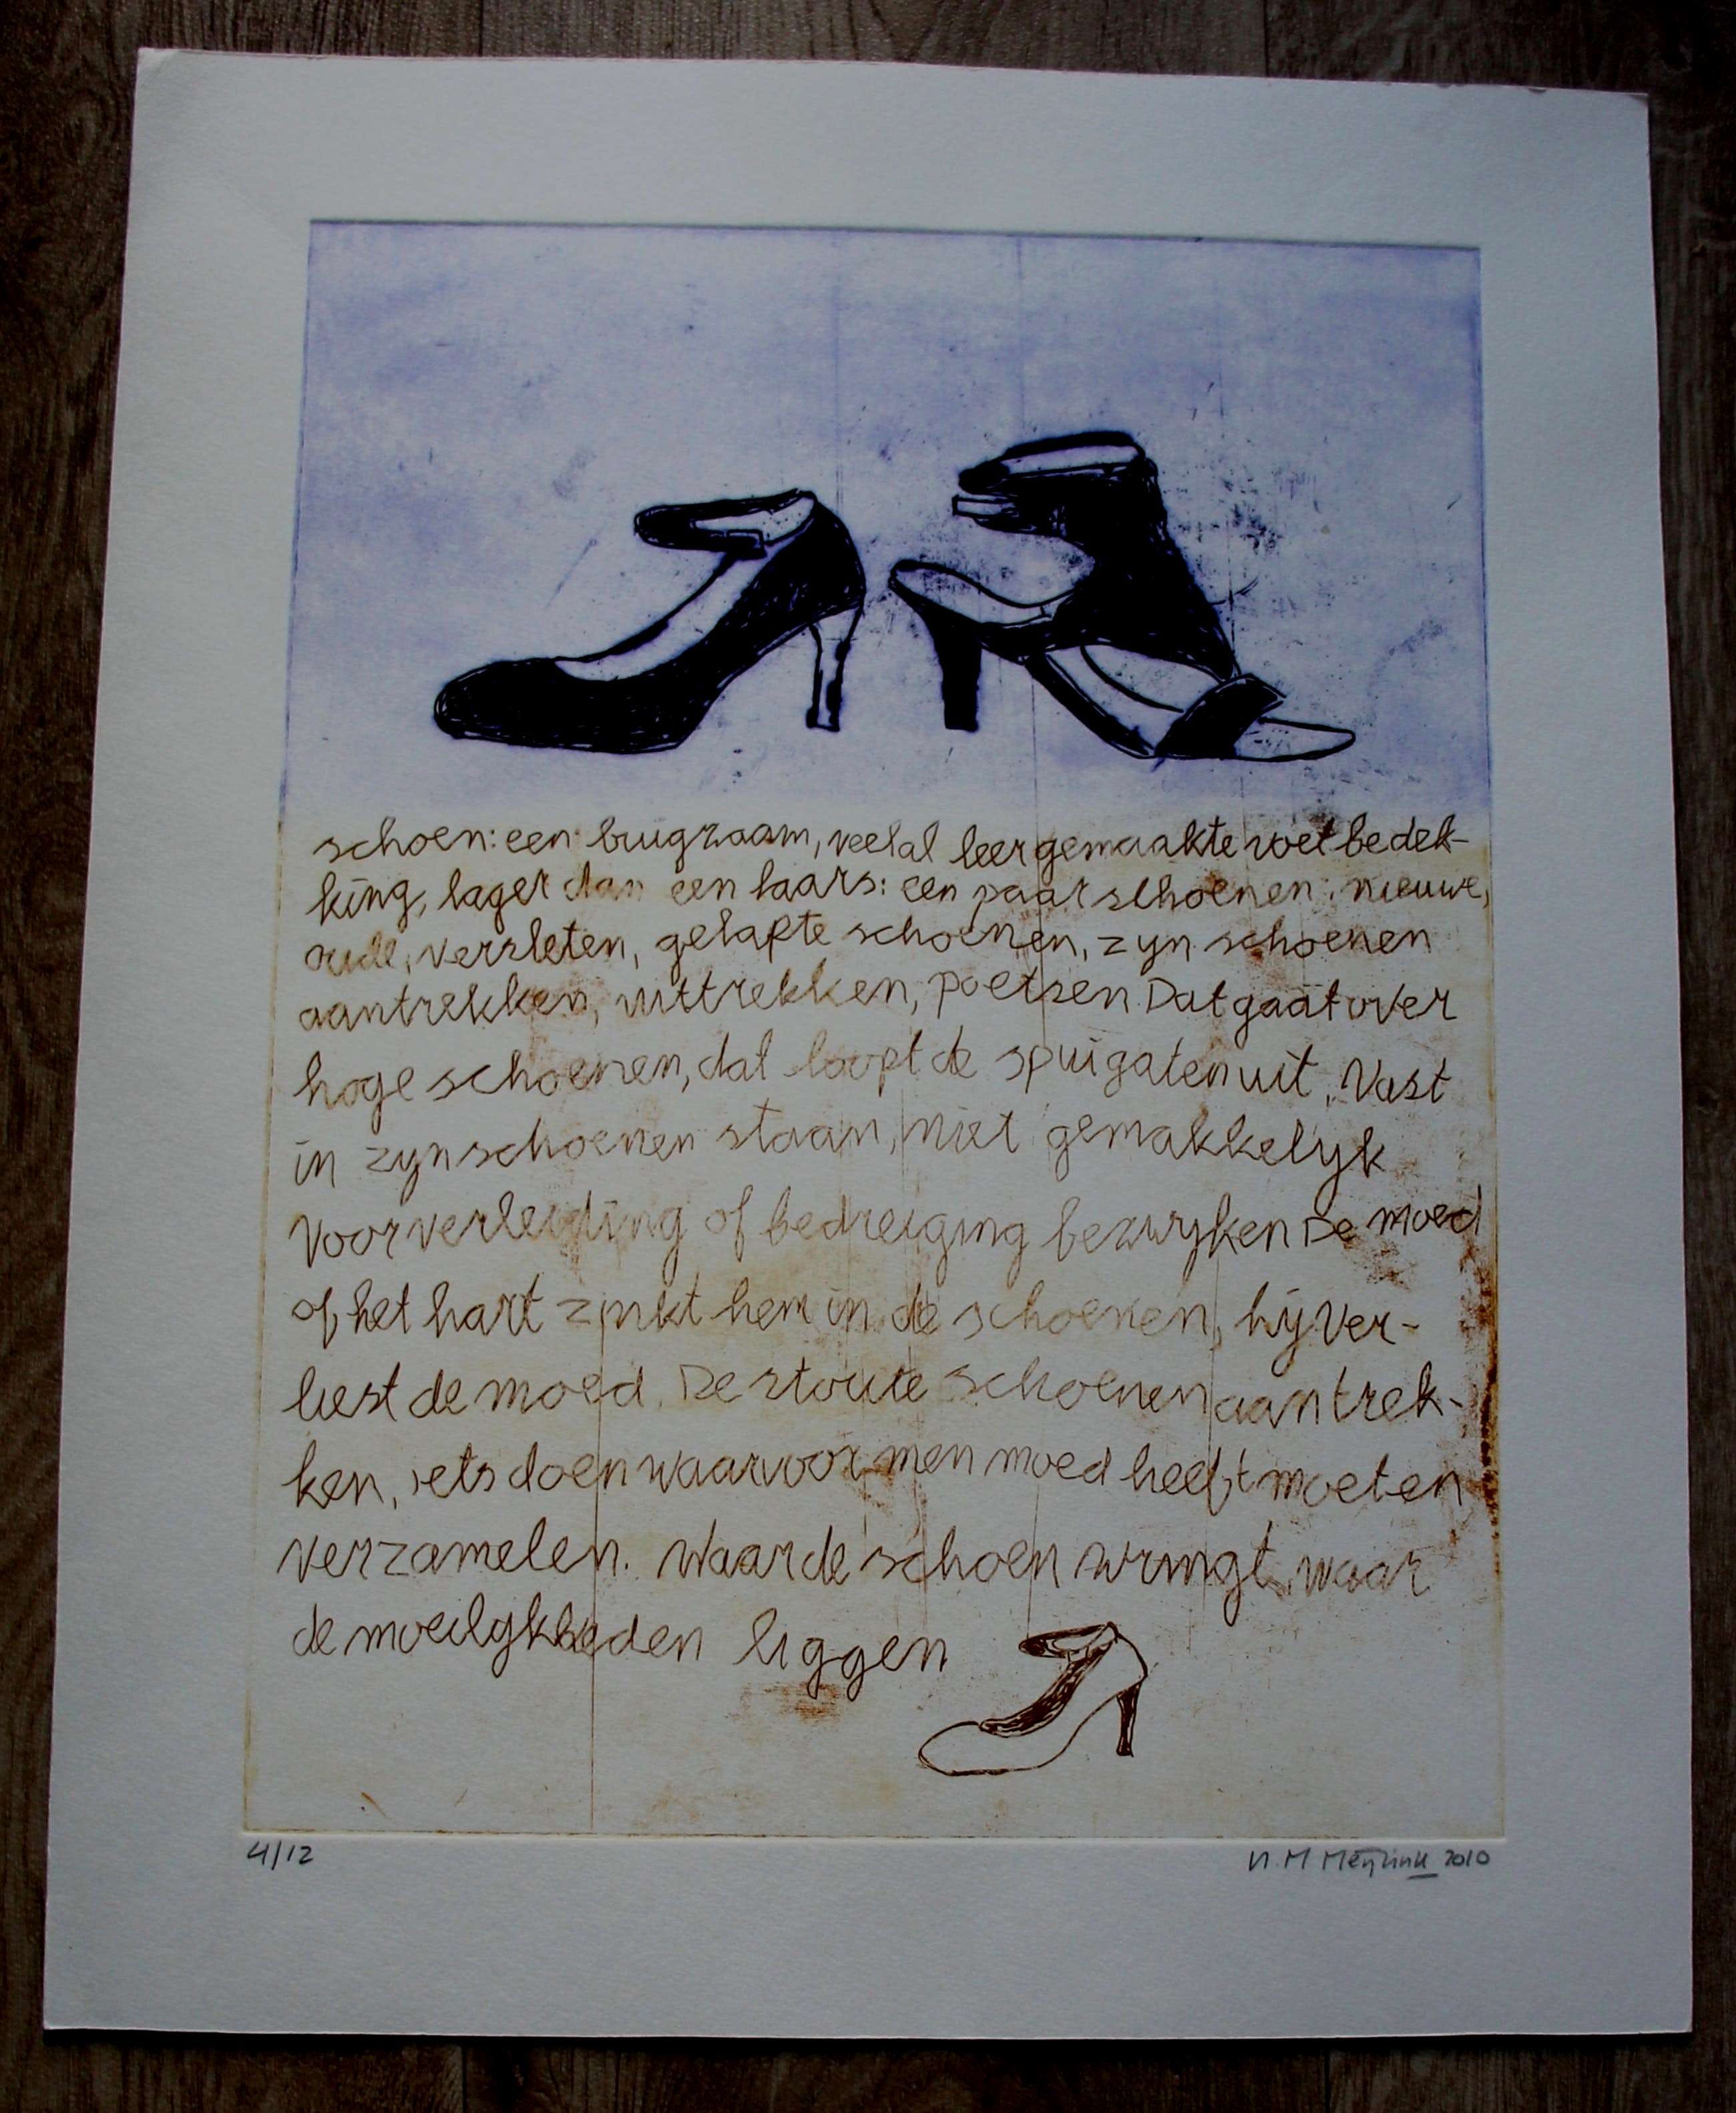 schoen: een brugzaam, veelal leer gemaakte voetbedek-
king, lager dan een laars: een paar schoenen: nieuwe,
oude, versleten, gelapte schoenen, zyn schoenen
aantrekken, uittrekken, poetsen Dat gaat over
hoge schoenen, dat loopt de spuigaten uit. Vast
in zyn schoenen staan, niet gemakkelyk
voor verleiding of bedreiging bezwyken De moed
of het hart zinkt hem in de schoenen, hij ver-
liest de moed. De stoute schoenen aantrek-
ken, iets doen waarvoor men moed heeft moeten
verzamelen. Waar de schoen wringt, waar
de moeilykheden liggen
4/12
M 2010